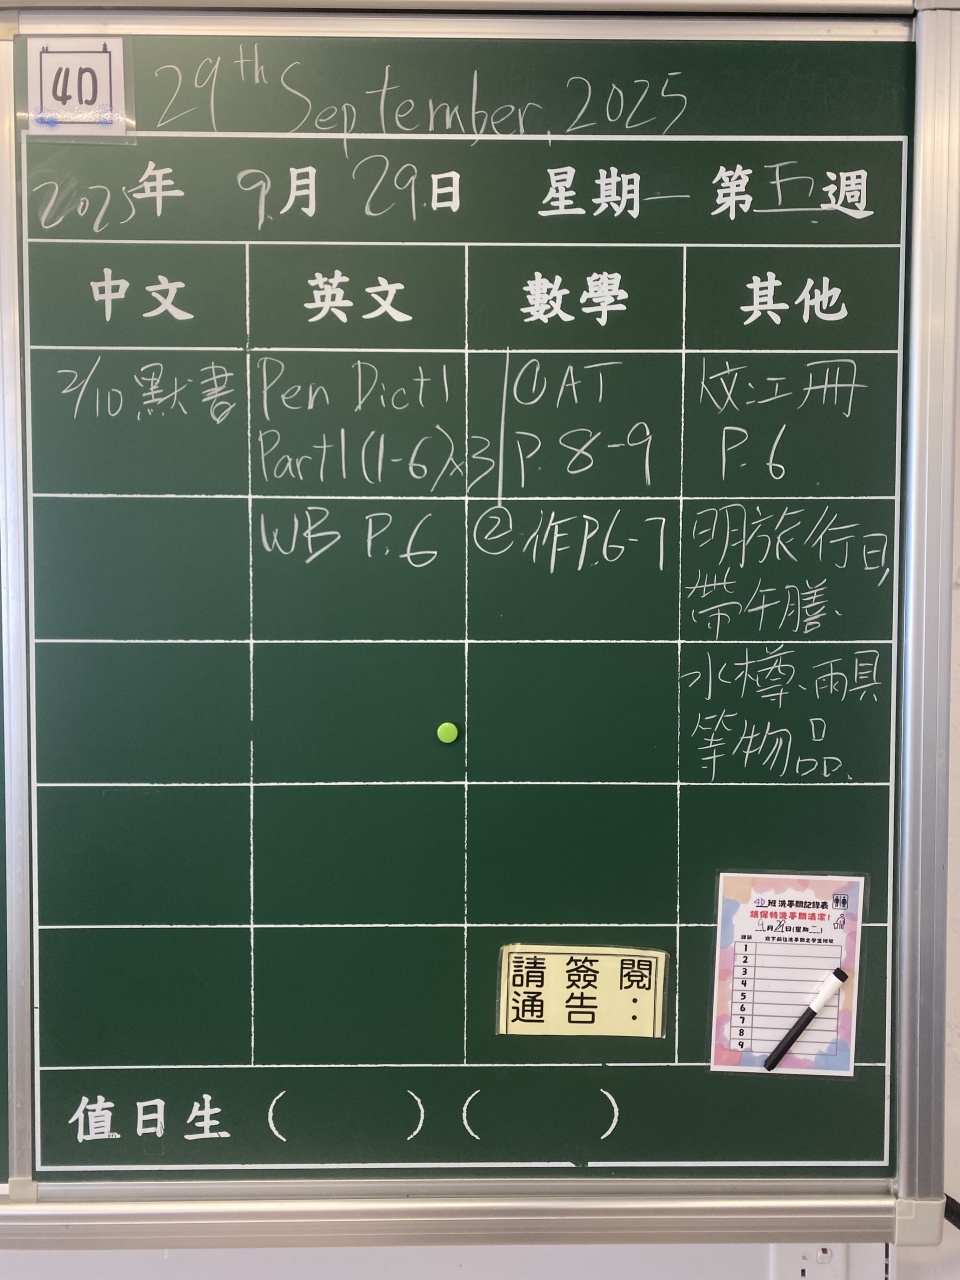 4D
29th September, 2025
2025年 9月 29日 星期一 第五週
中文 英文 數學 其他
2/10 默書
Pen Dict1
Part1 (1-6)x3
WB P.6
①AT
P. 8-9
②作P.6-7
工冊
P.6
明旅行日,
帶午膳.
水樽、雨具
等物品.
4D班洗手間記錄表
請保持洗手間清潔!
月 日(星期 )
1
2
3
4
5
6
7
8
9
請簽閱
通告：
值日生 ( ) ( )